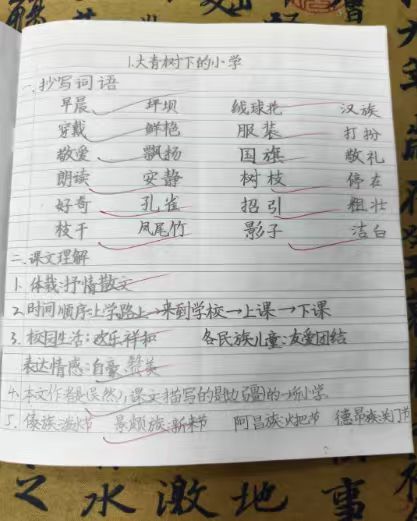 1.大青树下的小学
一、抄写词语
早晨 坪坝 绒球花 汉族
穿戴 鲜艳 服装 打扮
敬爱 飘扬 国旗 敬礼
朗读 安静 树枝 停在
好奇 孔雀 招引 粗壮
枝干 凤尾竹 影子 洁白
二、课文理解
1. 体裁:抒情散文
2. 时间顺序:上学路上→来到学校→上课→下课
3. 校园生活:欢乐祥和 各民族儿童:友爱团结
表达情感:自豪 赞美
4. 本文作者是(吴然),课文描写的是边疆的一所小学
5. 傣族泼水节 景颇族新米节 阿昌族火把节 德昂族关门节
之 水 激 地